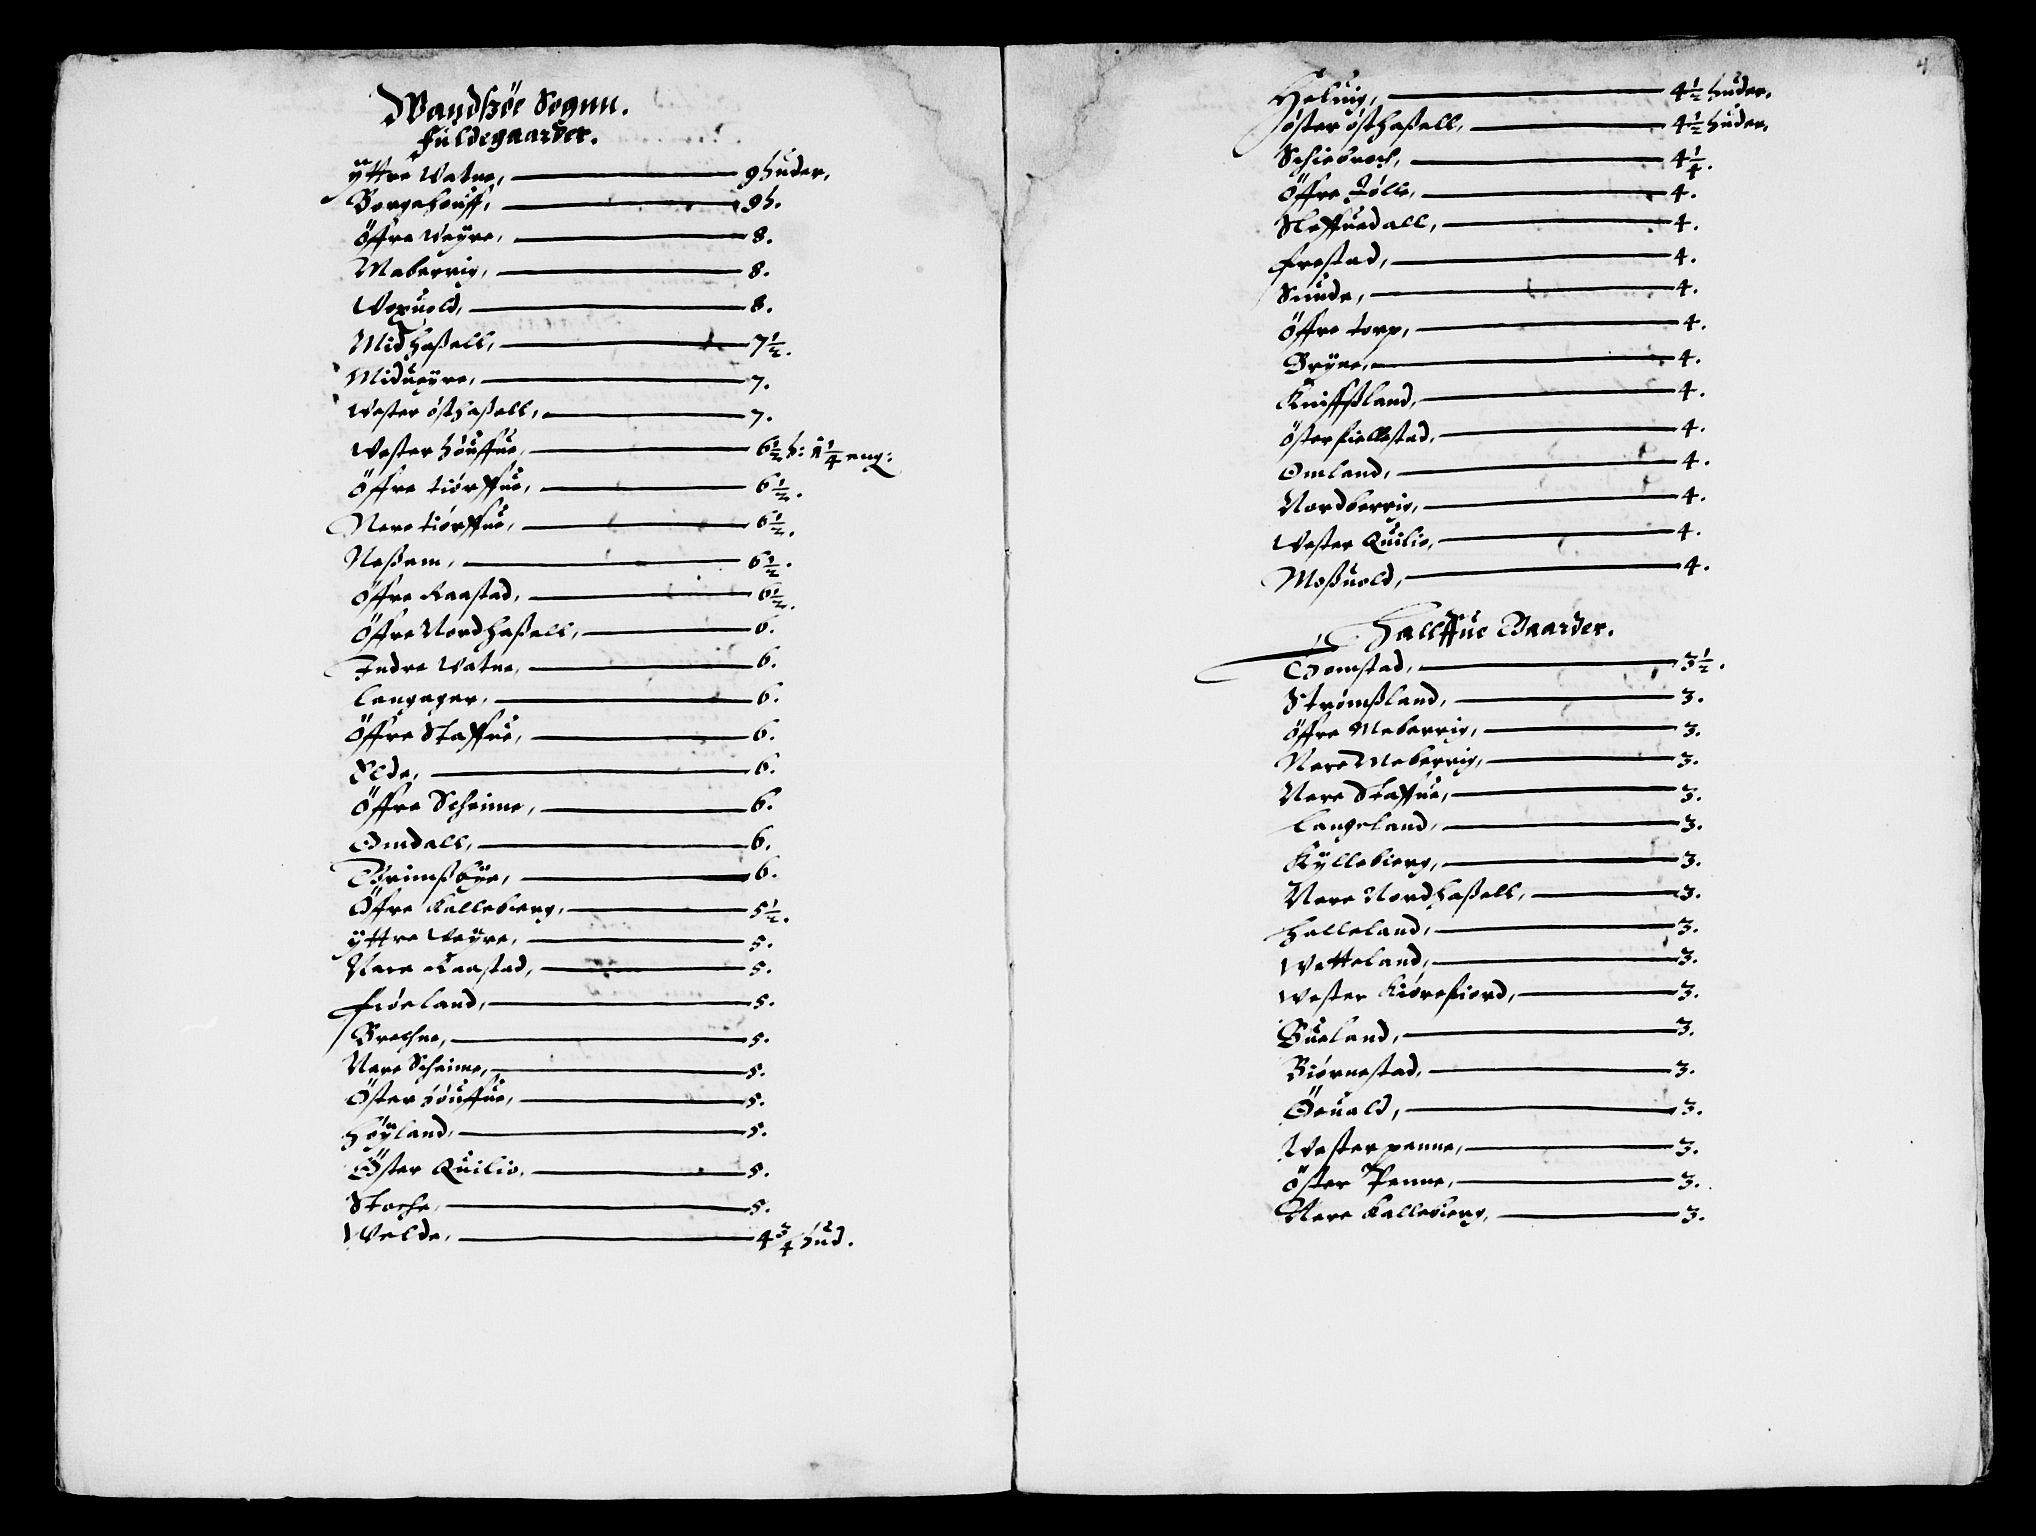 Wandßöe Sognn.
Fuldegaarder.
ÿttre Watne, 9 huder,
Borgehouff, 9 h.
Öffre Weÿre, 8.
Maberrig, 8.
Woxuold, 8.
Midhaßell, 7½.
Midueÿre, 7.
Wester östhaßell, 7.
Wester höuffue, 6½ h: 1¼ eng:
Öffre tiörffue, 6½.
Nere tiörffue, 6½.
Neßem, 6½.
Öffre Raastad, 6½.
Öffre Nordhaßell, 6.
Indre Watne, 6.
Langager, 6.
Öffre Staffue, 6.
Elde, 6.
Öffre Scheime, 6.
Omdall, 6.
Grimßbÿe, 6.
Öffre Kallebierg, 5½.
ÿttre Weÿre, 5.
Nere Raastad, 5.
Fiöeland, 5.
Brechne, 5.
Nere Scheime, 5.
Öster höuffue, 5.
Höÿland, 5.
Öster Quilio, 5.
Stoche, 5.
Welde, 4¾ hud.
4
Heluig, 4½ huder,
öster östhaßell, 4½ huder,
Schiebroch, 4¼.
Öffre Jölle, 4.
Steffuedall, 4.
Frestad, 4.
Sunde, 4.
Öffre torp, 4.
Brÿne, 4.
Kniffßland, 4.
Österfiellestad, 4.
Omland, 4.
Nordberrig, 4.
Wester Quilio, 4.
Moßuold, 4.
Hallffue Gaarder.
Gomstad, 3½.
Strömßland, 3.
Öffre Meberrig, 3.
Nere Meberrig, 3.
Nere Staffue, 3.
Langeland, 3.
Kÿllebierg, 3.
Nere Nordhaßell, 3.
Helleland, 3.
Wetteland, 3.
Wester Kiörefiord, 3.
Bueland, 3.
Biörnestad, 3.
Öeuald, 3.
Wester penne, 3.
Öster Penne, 3.
Nere Kallebierg, 3.